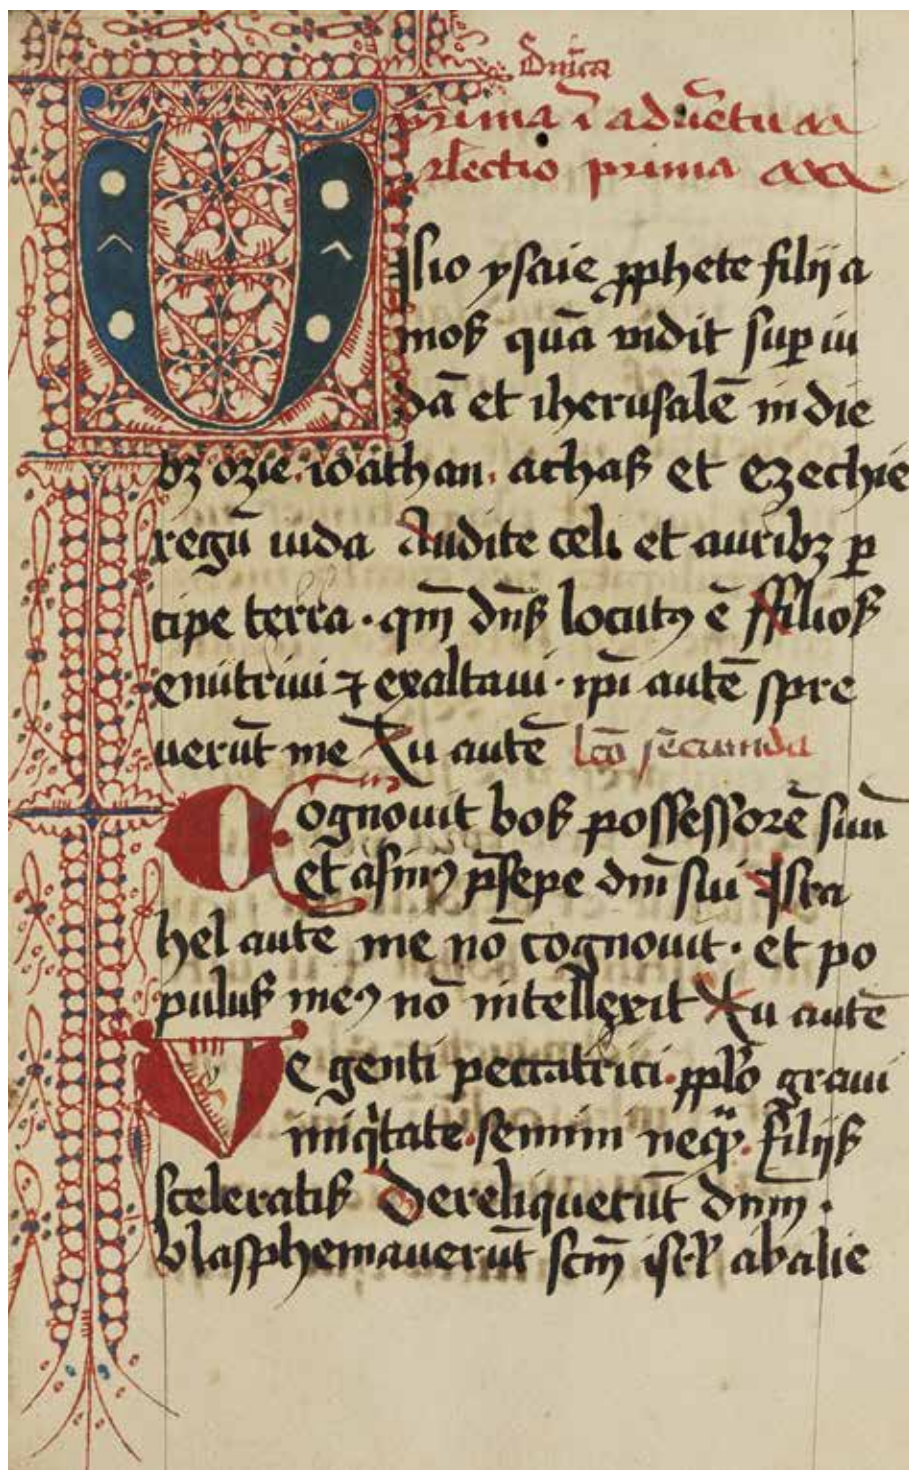 Dnica
prima ī aduētu
lectio prima
Uisio ysaie pphete filij a
mos quā vidit sup iu
dā et iherusalē in die
bꝫ ozie. ioathan. achas et ezechie
regū iuda Audite celi et auribꝫ ꝑ
cipe terra. qm̄ dn̄s locutꝰ ē ffilios
enutriui ⁊ exaltaui. ip̄i autē spre
uerūt me Tu autē lcō secunda
Cognouit bos possessorē suū
et asinꝰ p̄sepe dn̄i sui Isra
hel autē me nō cognouit. et po
pulus meꝰ nō intellexit Tu autē
Ve genti peccatrici. pplo graui
iniqͥtate. semini neqͣ. filijs
sceleratis Dereliquerūt dn̄m.
blasphemauerūt scm̄ isrl̄ abalie